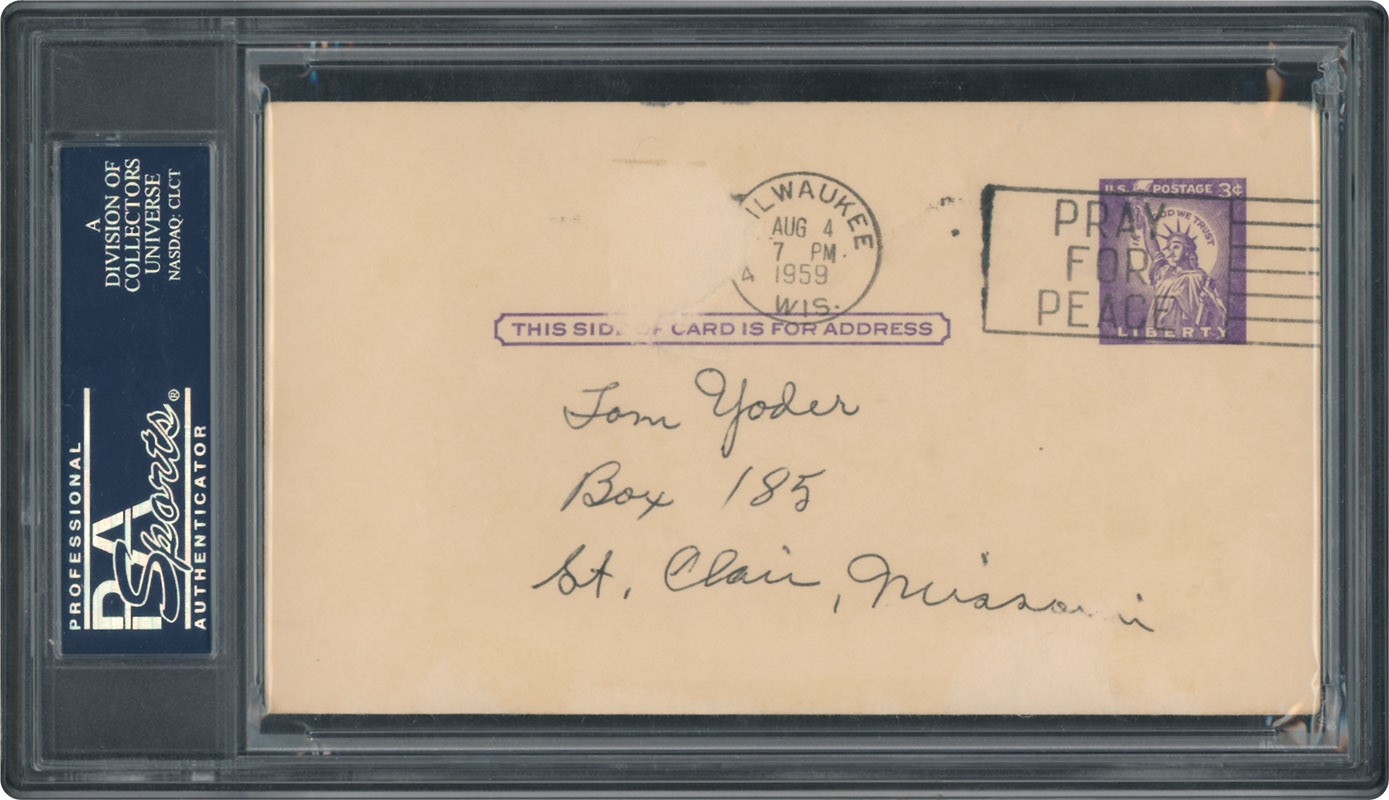 A
DIVISION OF
COLLECTORS
UNIVERSE
NASDAQ: CLCT
PROFESSIONAL
PSA
Sports®
AUTHENTICATOR
ILWAUKEE
AUG 4
7 PM
4 1959
WIS.
U.S. POSTAGE 3¢
OD WE TRUST
LIBERTY
PRAY
FOR
PEACE
THIS SIDE OF CARD IS FOR ADDRESS
Tom Yoder
Box 185
St. Clair, Missouri